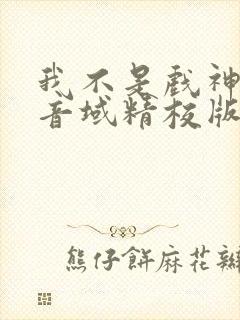 我不是戏神
音域精校版
熊仔餅麻花辮